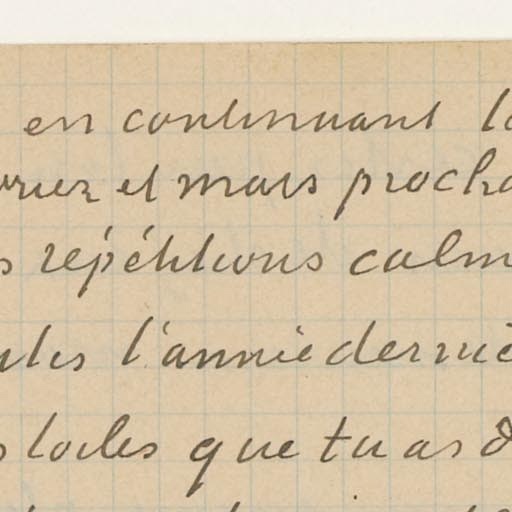 en continuant la
vrier et mars procha
s répétitions calm
utes l'année derniè
s toiles que tu as d